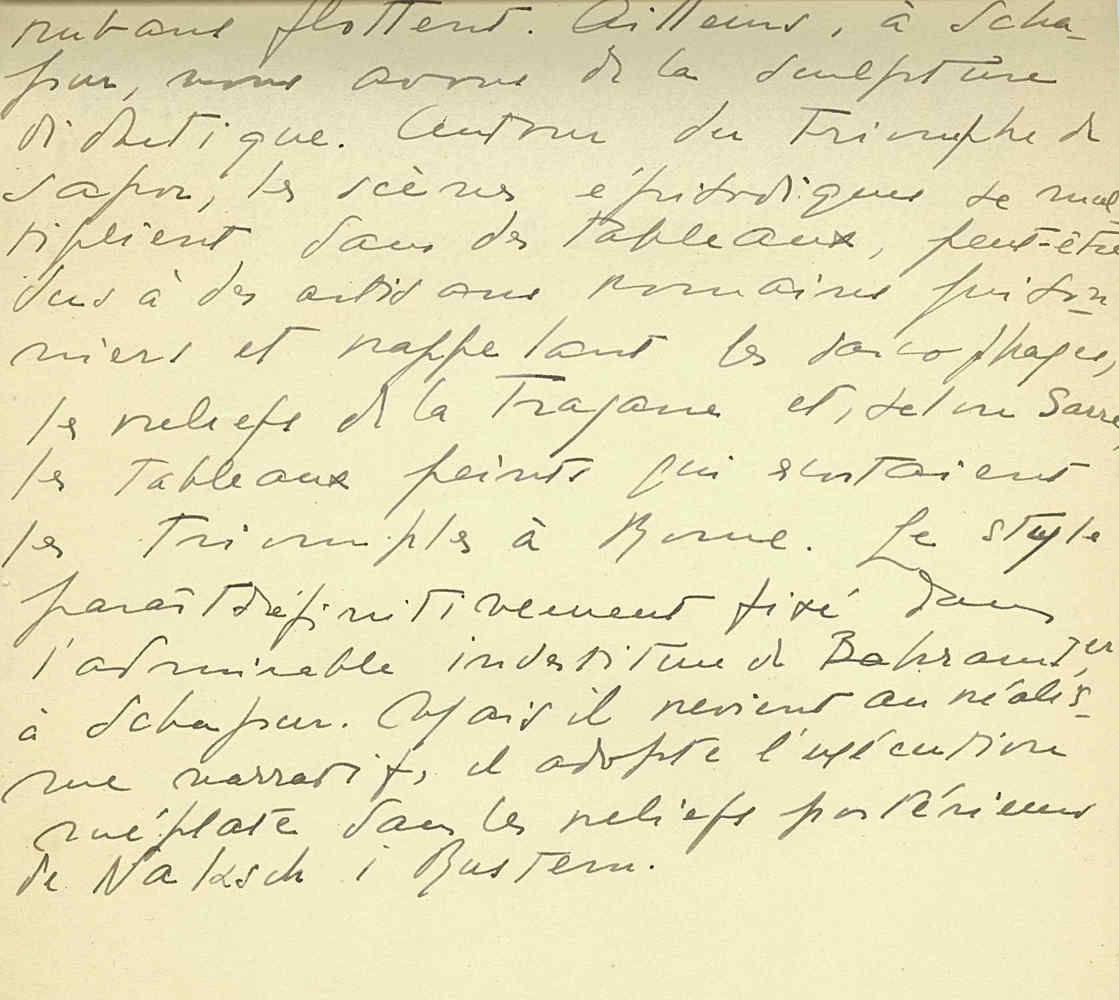 rubans flottent. Ailleurs, à Scha-
pur, nous avons de la sculpture
didactique. Autour du Triomphe de
Sapor, les scènes épisodiques se mul-
tiplient dans des tableaux, peut-être
dus à des artisans romains prison-
niers et rappelant les sarcophages,
les reliefs de la Trajane et, selon Sarre,
les tableaux peints qui
les Triomphes à Rome. Le style
paraît définitivement fixé dans
l'admirable investiture de Bahram Ier
à Schapur. Mais il revient au réalis-
me narratif, il adopte l'exécution
méplate dans les reliefs postérieurs
de Naksch i Rustem.